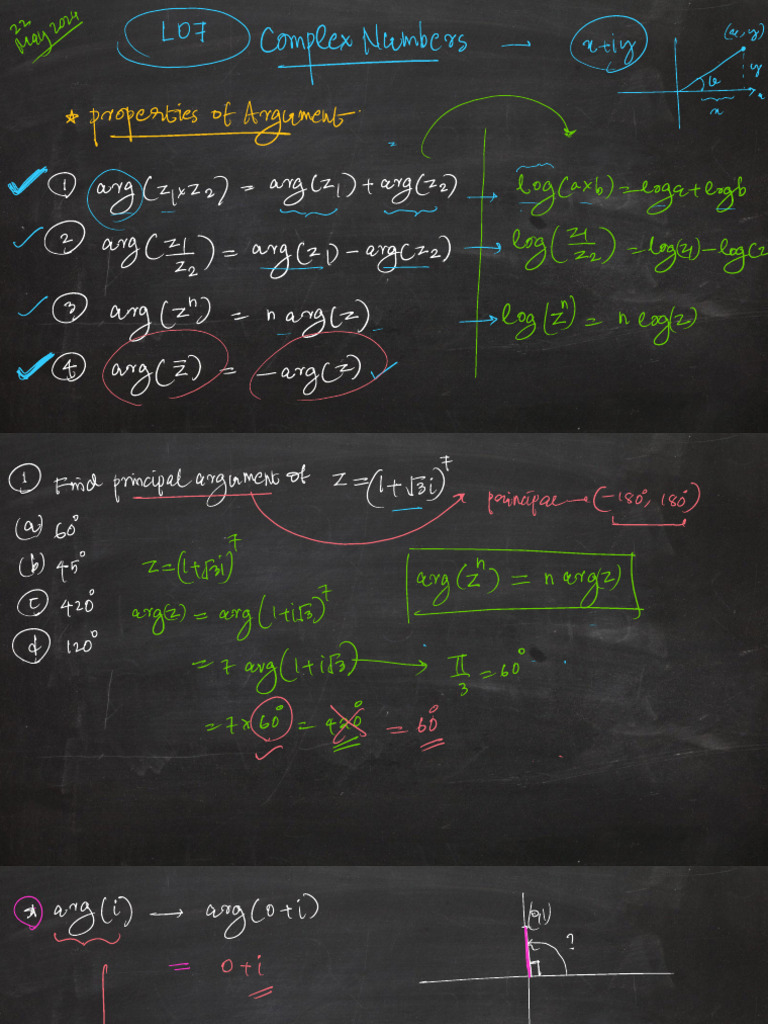 22
May 2024
L07 Complex Numbers — x+iy
(x,y)
y
x
x
* properties of Argument
① arg(z₁×z₂) = arg(z₁)+arg(z₂) → log(a×b)=loga+logb
② arg(z₁/z₂) = arg(z₁)-arg(z₂) → log(z₁/z₂)=log(z₁)-log(z
③ arg(zⁿ) = n arg(z) → log(zⁿ) = n log(z)
④ arg(z̄) = -arg(z)
① Find principal argument of z=(1+√3i)⁷
principal → (-180°, 180°)
(a) 60°
(b) 45°
(c) 420°
(d) 120°
z=(1+√3i)⁷
arg(zⁿ) = n arg(z)
arg(z) = arg(1+i√3)⁷
= 7 arg(1+i√3) → π/3 = 60°
= 7×60° = 420° = 60°
* arg(i) → arg(0+i)
= 0+i
?